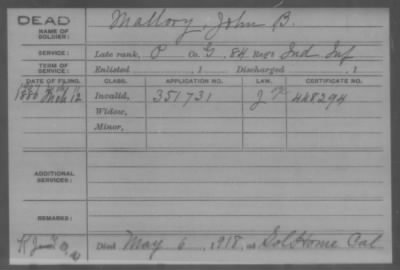 DEAD
NAME OF SOLDIER:
Mallory, John B.
SERVICE:
Late rank, P Co. G, 84 Reg't Ind Inf
TERM OF SERVICE:
Enlisted , 1 Discharged , 1
DATE OF FILING. CLASS. APPLICATION NO. LAW. CERTIFICATE NO.
1880 Feb 12 Invalid, 351731 448294
Widow,
Minor,
ADDITIONAL SERVICES:
REMARKS:
Died May 6, 1918, at Sol Home Cal